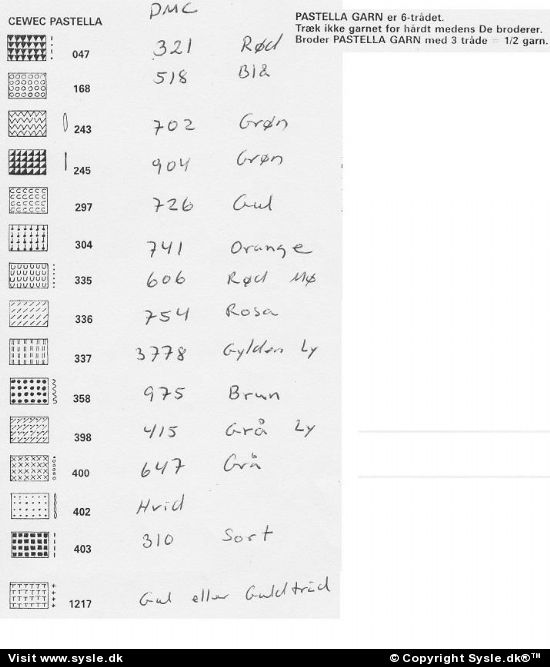 DMC
CEWEC PASTELLA
PASTELLA GARN er 6-trådet.
Træk ikke garnet for hårdt medens De broderer.
Broder PASTELLA GARN med 3 tråde = 1/2 garn.
047 321 Rød
168 518 Blå
243 702 Grøn
245 904 Grøn
297 726 Gul
304 741 Orange
335 606 Rød Mø
336 754 Rosa
337 3778 Gylden Ly
358 975 Brun
398 415 Grå Ly
400 647 Grå
402 Hvid
403 310 Sort
1217 Gul eller Guldtråd
Visit www.sysle.dk © Copyright Sysle.dk®™